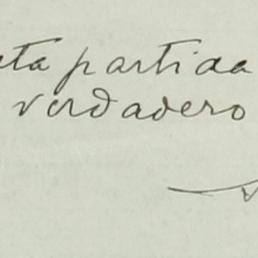 eta partida
verdadero